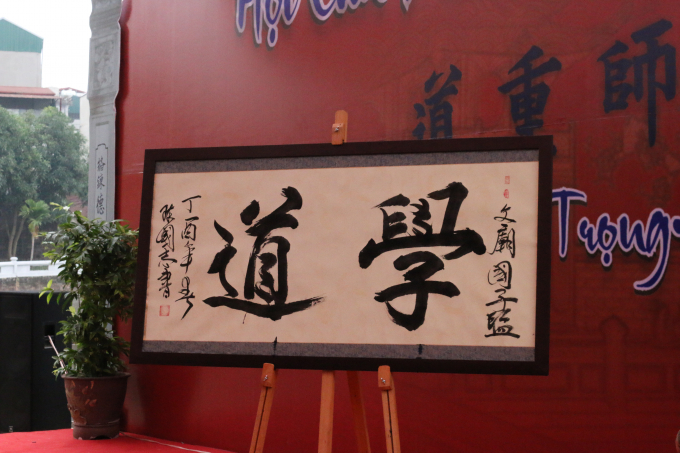 Hội
師重道
Trọng
文廟國子監
學道
丁酉年春